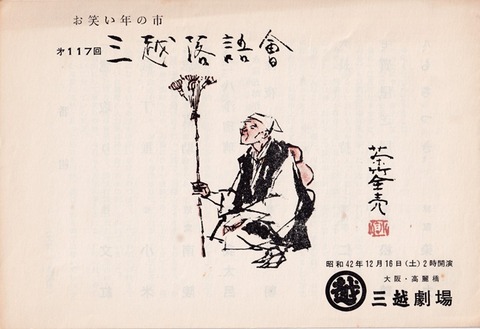 お笑い年の市
第117回 三越落語會
茶筅売
昭和42年12月16日(土)2時開演
大阪・高麗橋
越 三越劇場